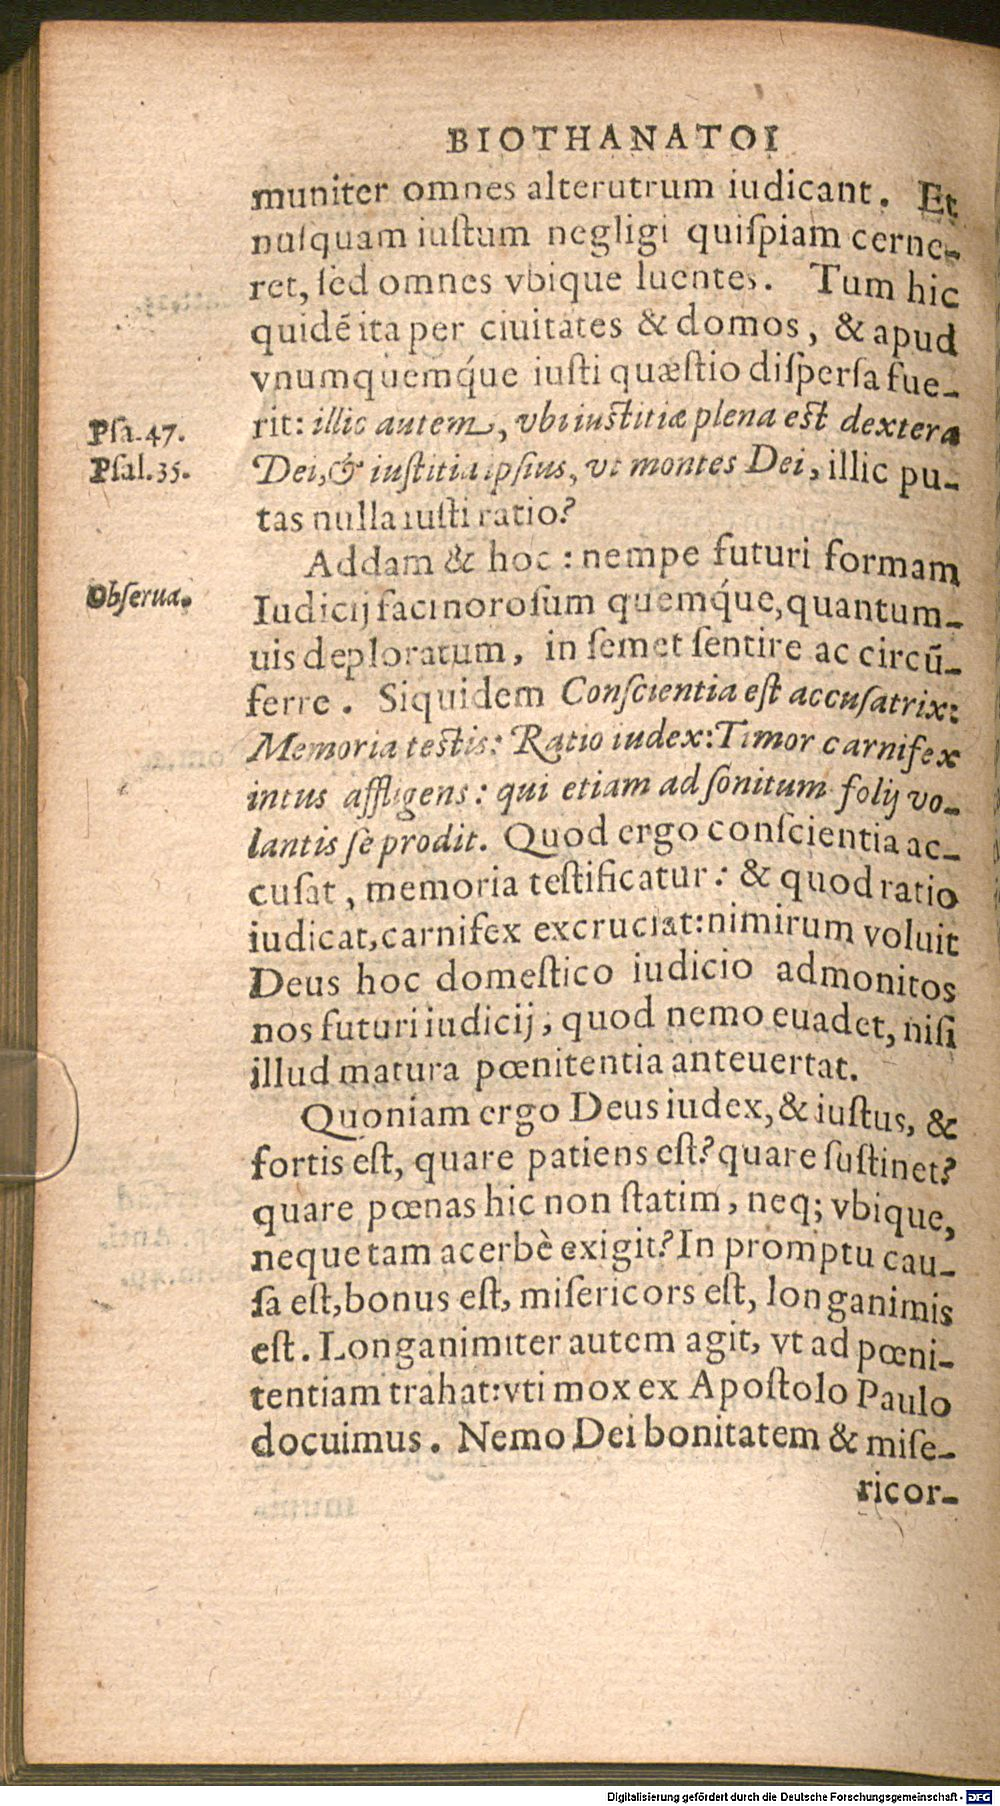 BIOTHANATOI
muniter omnes alterutrum iudicant. Et
nusquam iustum negligi quispiam cerne-
ret, sed omnes vbique luentes. Tum hic
quidē ita per ciuitates & domos, & apud
vnumquemq́ue iusti quæstio dispersa fue-
rit: illic autem, vbi iustitiæ plena est dextera
Psa. 47.
Dei, & iustitia ipsius, vt montes Dei, illic pu-
Psal. 35.
tas nulla iusti ratio?
Addam & hoc: nempe futuri formam
Obserua.
Iudicij facinorosum quemq́ue, quantum-
uis deploratum, in semet sentire ac circū-
ferre. Siquidem Conscientia est accusatrix:
Memoria testis: Ratio iudex: Timor carnifex
intus affligens: qui etiam ad sonitum folij vo-
lantis se prodit. Quod ergo conscientia ac-
cusat, memoria testificatur: & quod ratio
iudicat, carnifex excruciat: nimirum voluit
Deus hoc domestico iudicio admonitos
nos futuri iudicij, quod nemo euadet, nisi
illud matura pœnitentia anteuertat.
Quoniam ergo Deus iudex, & iustus, &
fortis est, quare patiens est? quare sustinet?
quare pœnas hic non statim, neq; vbique,
neque tam acerbè exigit? In promptu cau-
sa est, bonus est, misericors est, longanimis
est. Longanimiter autem agit, vt ad pœni-
tentiam trahat: vti mox ex Apostolo Paulo
docuimus. Nemo Dei bonitatem & mise-
ricor-
Digitalisierung gefördert durch die Deutsche Forschungsgemeinschaft - DFG